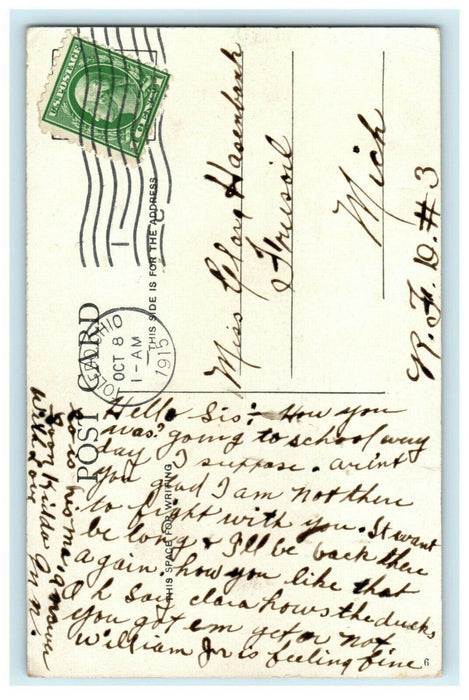 U.S. POSTAGE
1 CENT 1
TOLEDO, OHIO
OCT 8
1-AM
1915
POST CARD
THIS SIDE IS FOR THE ADDRESS
THIS SPACE FOR WRITING
Miss Clara Hasenbank
Fruesoil
Mich
R. F. D. #3
Hello Sis:- How you
was? going to school evry
day I suppose. arint
you glad I am not there
to fight with you. It want
be long & I'll be back there
again. how you like that
Ah Say clara hows the ducks
you got em yet or not
William Jr is feeling fine
so is his ma,
from
With Love
6